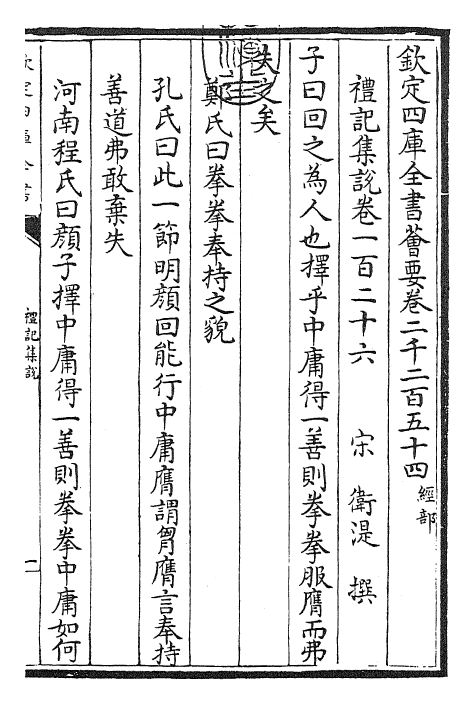 欽定四庫全書薈要卷二千二百五十四 經部
禮記集說卷一百二十六 宋 衛湜 撰
子曰回之為人也擇乎中庸得一善則拳拳服膺而弗
失之矣
鄭氏曰拳拳奉持之貌
孔氏曰此一節明顔回能行中庸膺謂胷膺言奉持
善道弗敢棄失
河南程氏曰顔子擇中庸得一善則拳拳中庸如何
禮記集說